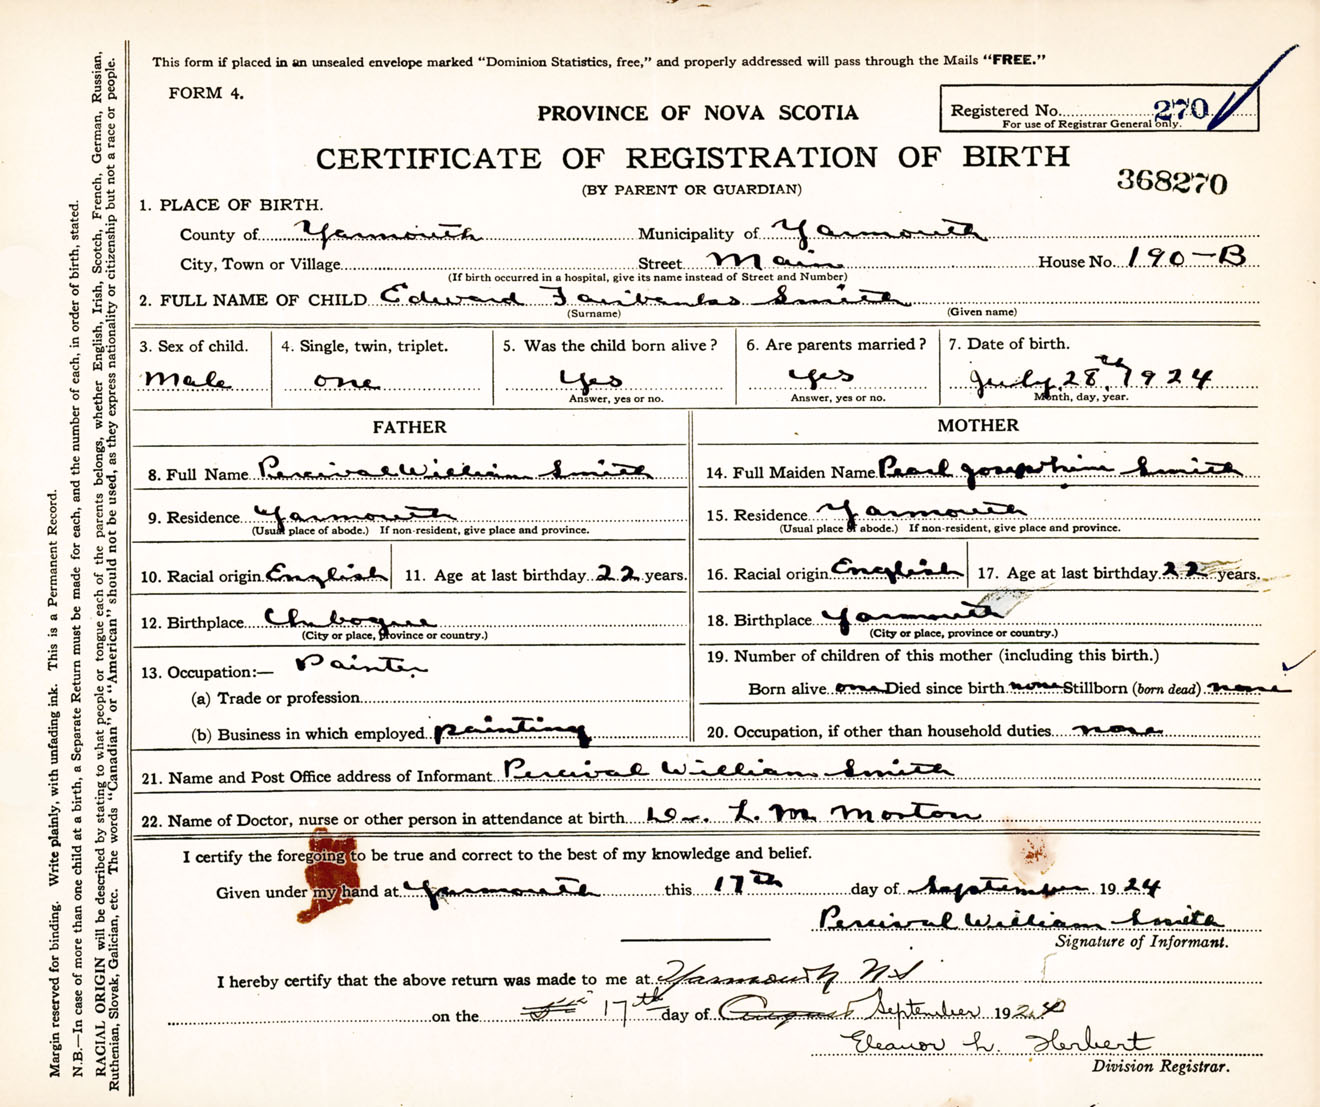 This form if placed in an unsealed envelope marked "Dominion Statistics, free," and properly addressed will pass through the Mails "FREE."
FORM 4.
PROVINCE OF NOVA SCOTIA
Registered No. 270
For use of Registrar General only.
CERTIFICATE OF REGISTRATION OF BIRTH
(BY PARENT OR GUARDIAN)
368270
1. PLACE OF BIRTH.
County of Yarmouth Municipality of Yarmouth
City, Town or Village Street Main House No. 190-B
(If birth occurred in a hospital, give its name instead of Street and Number)
2. FULL NAME OF CHILD Edward Fairbanks Smith
(Surname) (Given name)
3. Sex of child. 4. Single, twin, triplet. 5. Was the child born alive? 6. Are parents married? 7. Date of birth.
Male one Yes Yes July 28th 1924
Answer, yes or no. Answer, yes or no. Month, day, year.
FATHER MOTHER
8. Full Name Percival William Smith 14. Full Maiden Name Pearl Josephine Smith
9. Residence Yarmouth 15. Residence Yarmouth
(Usual place of abode.) If non-resident, give place and province. (Usual place of abode.) If non-resident, give place and province.
10. Racial origin English 11. Age at last birthday 22 years. 16. Racial origin English 17. Age at last birthday 22 years.
12. Birthplace Chebogue 18. Birthplace Yarmouth
(City or place, Province or country.) (City or place, province or country.)
13. Occupation:— Painter 19. Number of children of this mother (including this birth.)
(a) Trade or profession Born alive one Died since birth none Stillborn (born dead) none
(b) Business in which employed painting 20. Occupation, if other than household duties none
21. Name and Post Office address of Informant Percival William Smith
22. Name of Doctor, nurse or other person in attendance at birth Dr. L. M. Morton
I certify the foregoing to be true and correct to the best of my knowledge and belief.
Given under my hand at Yarmouth this 17th day of September 1924
Percival William Smith
Signature of Informant.
I hereby certify that the above return was made to me at Yarmouth N S
on the 17th day of August September 1924
Eleanor L. Herbert
Division Registrar.
Margin reserved for binding. Write plainly, with unfading ink. This is a Permanent Record.
N.B.—In case of more than one child at a birth, a Separate Return must be made for each, and the number of each, in order of birth, stated.
RACIAL ORIGIN will be described by stating to what people or tongue each of the parents belongs, whether English, Irish, Scotch, French, German, Russian,
Ruthenian, Slovak, Galician, etc. The words "Canadian" or "American" should not be used, as they express nationality or citizenship but not a race or people.